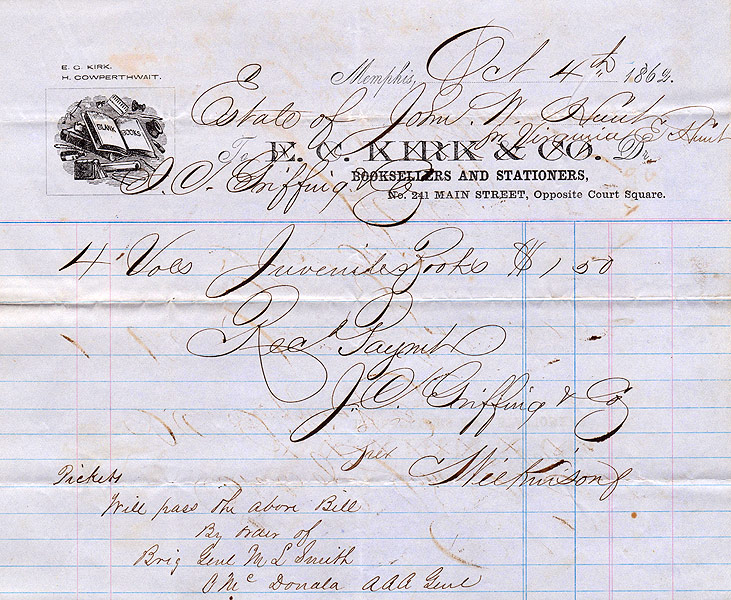 E. C. KIRK.
H. COWPERTHWAIT.
BLANK BOOKS
Memphis, Oct 4th 1862.
Estate of John. W. Hunt
for Virginia E Hunt
To E. C. KIRK & CO. Dr.
J. O. Griffing & Co
BOOKSELLERS AND STATIONERS,
No. 241 MAIN STREET, Opposite Court Square.
4 Vols Juvenile Books $1 50
Recd Paymt
J. O. Griffing & Co
per Wilkinson
Pickets
Will pass the above Bill
By order of
Brig Genl M L Smith
O Mc Donald AAA Genl